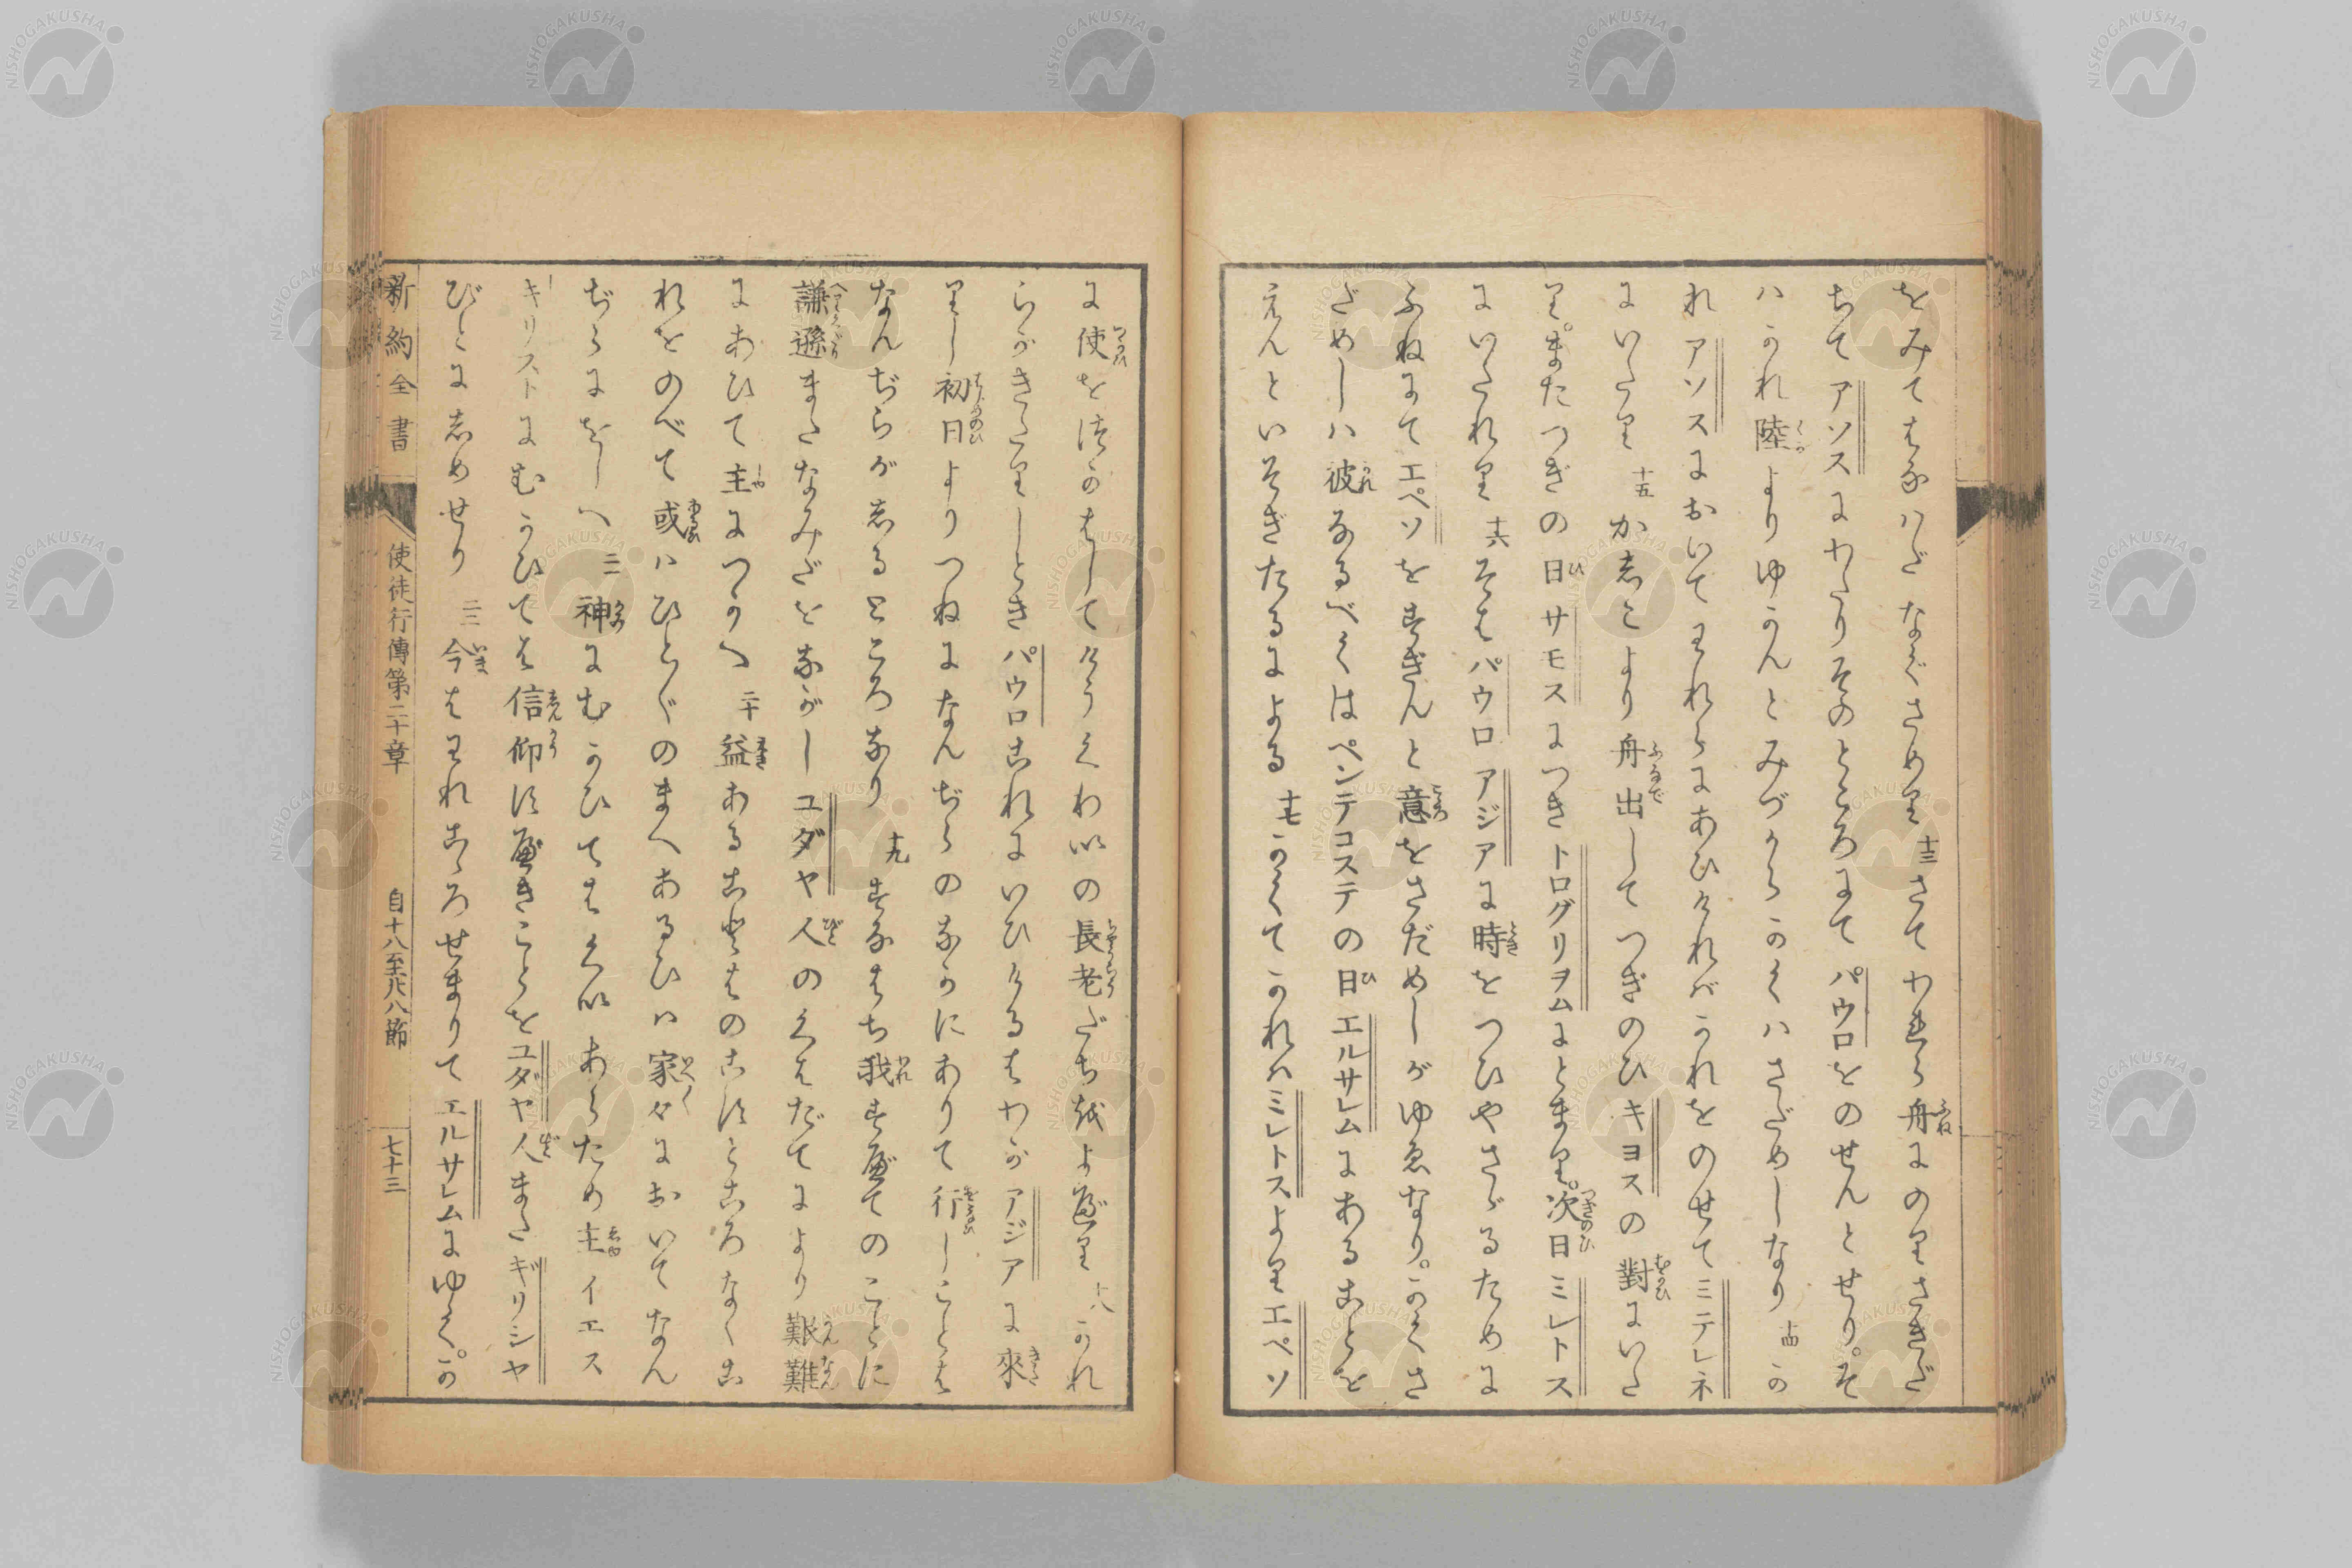 をみてはなハだなぐさめり 十三 さてわれら舟にのりさきだ
ちてアソスにわたりそのところにてパウロをのせんとせり。そ
ハかれ陸よりゆかんとみづからかくハさだめしなり 十四 か
れアソスにおいてわれらにあひけれバかれをのせてミテレネ
にいたり 十五 かしこより舟出してつぎのひキヨスの對にいた
り。またつぎの日サモスにつきトログリヲムにとまり。次日ミレトス
にいたれり 十六 そはパウロアジアに時をつひやさゞるために
ふねにてエペソをすぎんと意をさだめしがゆゑなり。かくさ
だめしハ彼なるべくはペンテコステの日エルサレムにあることを
えんといそぎたるによる 十七 かくてかれハミレトスよりエペソ
に使をつかはしてけうくわいの長老だちをよべり 十八 かれ
らがきたりしときパウロこれにいひけるはわがアジアに來
りし初日よりつねになんぢらのなかにありて行しことは
なんぢらがしるところなり 十九 すなはち我すべてのことに
謙遜またなみだをながしユダヤ人のくはだてにより艱難
にあひて主につかへ 二十 益あることはのこすところなくこ
れをのべて或ハひとびとのまへあるひハ家々においてなん
ぢらにをしへ 二一 神にむかひてはくいあらため主イエス
キリストにむかひては信仰すべきことをユダヤ人またギリシヤ
びとにしめせり 二二 今はわれこゝろせまりてエルサレムにゆく。か
新約全書 使徒行傳第二十章 自十八至廿八節 七十三
NISHOGAKUSHA